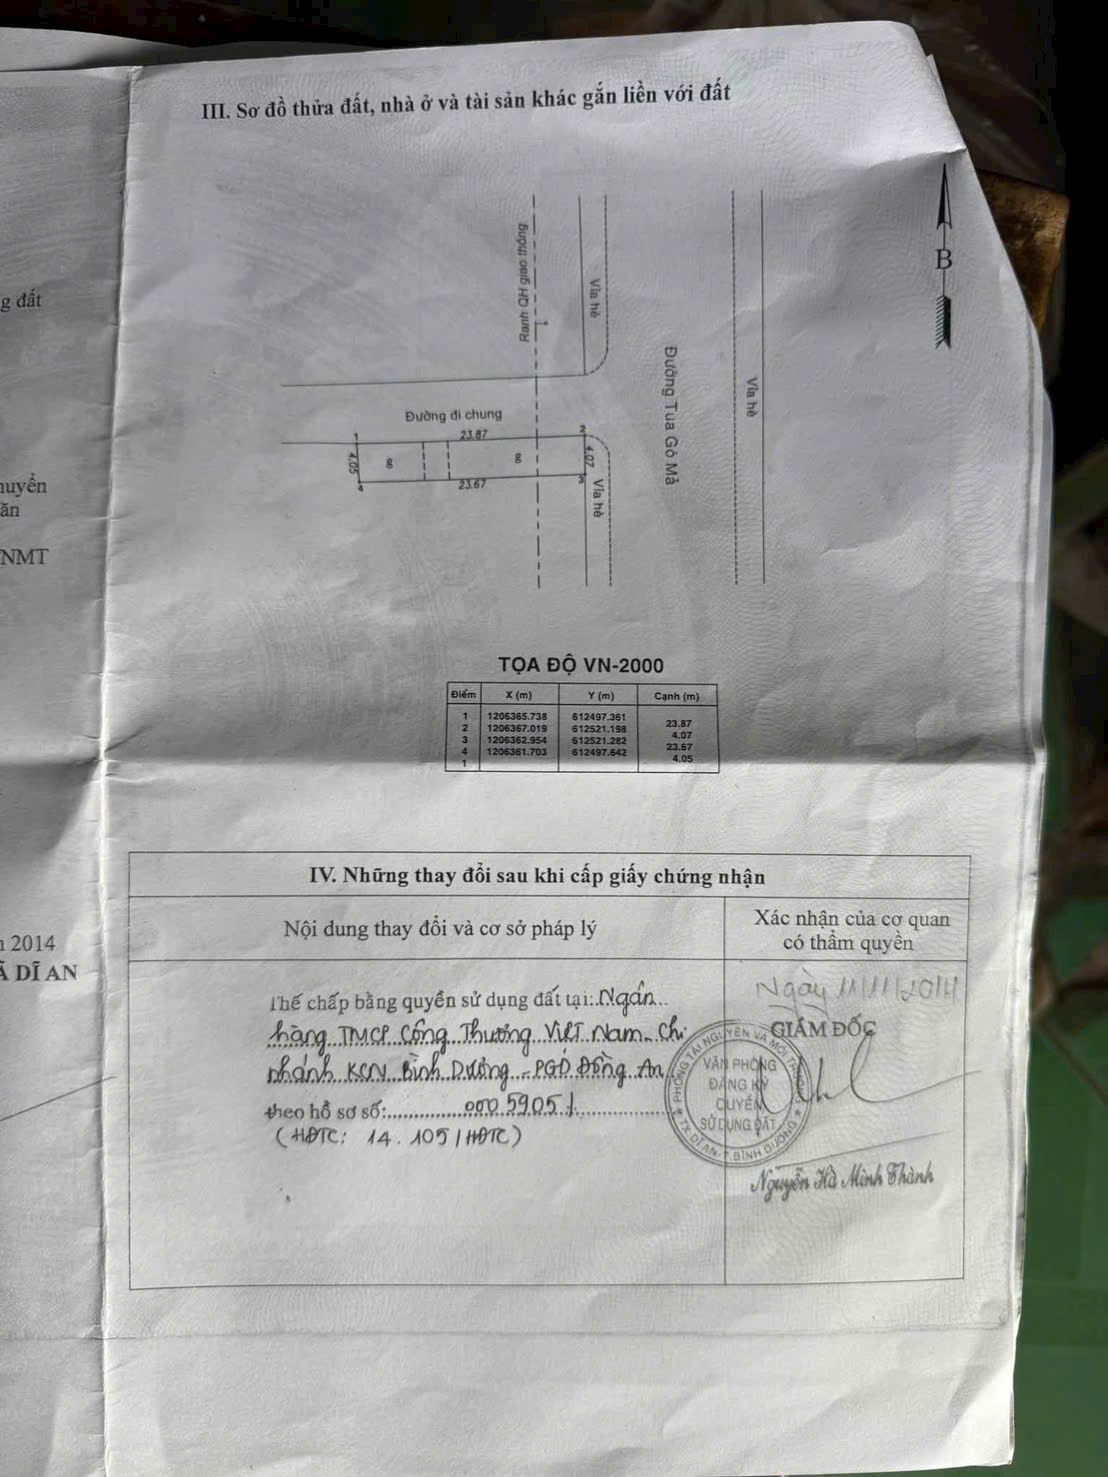 III. Sơ đồ thửa đất, nhà ở và tài sản khác gắn liền với đất
B
Ranh QH giao thông
Vỉa hè
Đường Tua Gò Mả
Vỉa hè
Đường đi chung
1
23.87
2
4.05
g
g
4.07
4
23.67
3
Vỉa hè
g đất
huyển
ăn
NMT
TỌA ĐỘ VN-2000
Điểm X (m) Y (m) Cạnh (m)
1 1206365.738 612497.361
23.87
2 1206367.019 612521.198
4.07
3 1206362.954 612521.282
23.67
4 1206361.703 612497.642
4.05
1
2014
Ã DĨ AN
IV. Những thay đổi sau khi cấp giấy chứng nhận
Nội dung thay đổi và cơ sở pháp lý
Xác nhận của cơ quan
có thẩm quyền
Thế chấp bằng quyền sử dụng đất tại: Ngân
hàng TMCP Công Thương Việt Nam - Chi
nhánh KCN Bình Dương - PGD Đồng An
theo hồ sơ số: 0005905
(HĐTC: 14.105/HĐTC)
Ngày 11/11/2014
GIÁM ĐỐC
PHÒNG TÀI NGUYÊN VÀ MÔI TRƯỜNG
VĂN PHÒNG
ĐĂNG KÝ
QUYỀN
SỬ DỤNG ĐẤT
TX. DĨ AN - T. BÌNH DƯƠNG
Nguyễn Hà Minh Thành